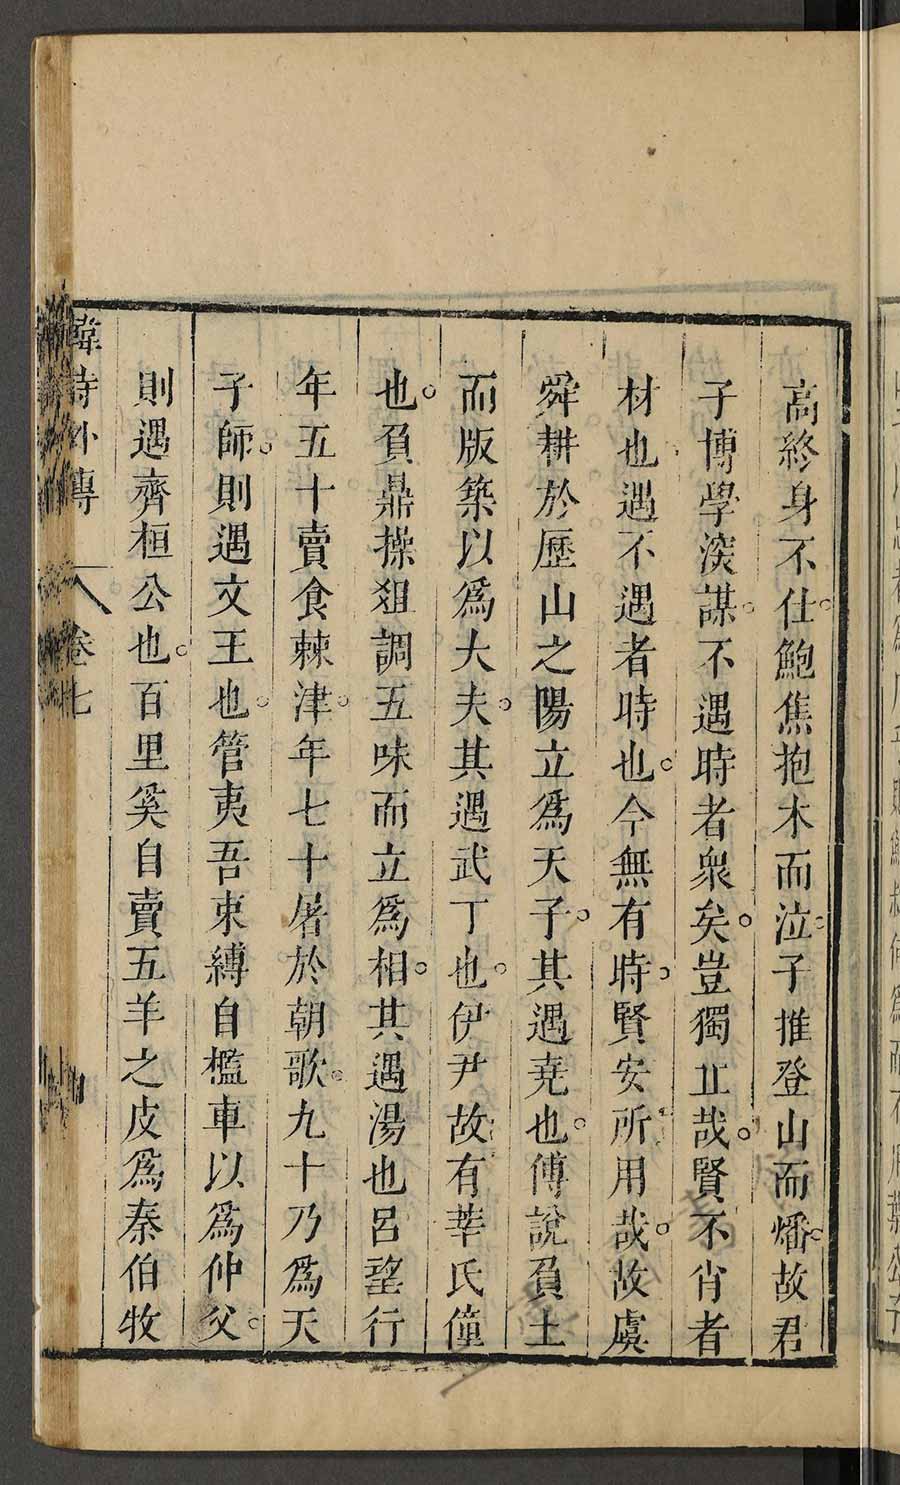 高終身不仕。鮑焦抱木而泣。子推登山而燔。故君
子博學深謀。不遇時者衆矣。豈獨丘哉。賢不肖者
材也遇不遇者時也。今無有時。賢安所用哉。故虞
舜耕於歷山之陽立爲天子。其遇堯也。傅說負土
而版築以爲大夫。其遇武丁也。伊尹故有莘氏僮
也。負鼎操俎調五味而立爲相。其遇湯也呂望行
年五十賣食棘津。年七十屠於朝歌。九十乃爲天
子師。則遇文王也。管夷吾束縛自檻車以爲仲父。
則遇齊桓公也。百里奚自賣五羊之皮爲秦伯牧
韓詩外傳 卷七